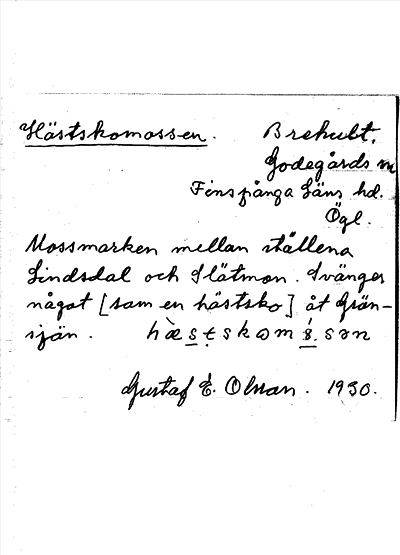 Hästskomossen. Brekult,
Godegårds sn
Finspånga läns hd.
Ögl.
Mossmarken mellan ställena
Lindsdal och Slätmon. Svänger
något [som en hästsko] åt Grän-
sjön.
Gustaf E. Olsson. 1930.